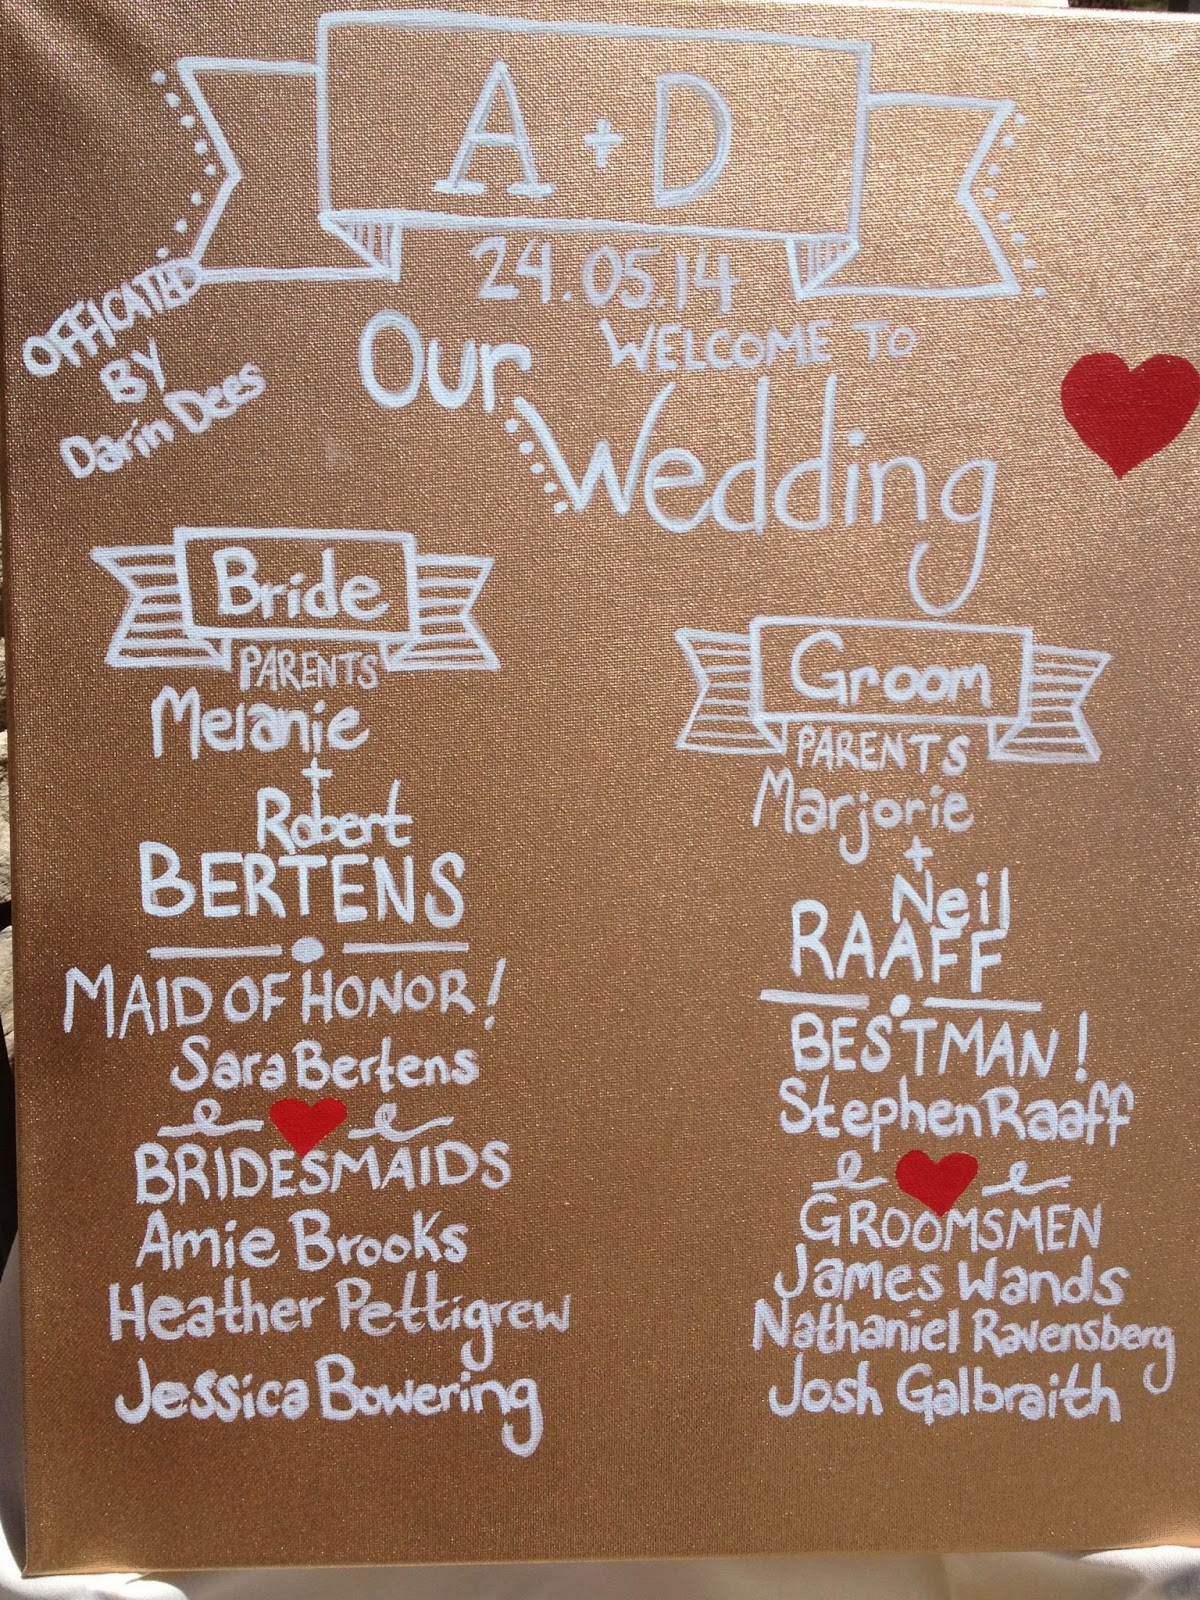 A + D
24.05.14
OFFICATED
BY
Darin Dees
WELCOME TO
Our
Wedding
Bride
PARENTS
Melanie
+
Robert
BERTENS
MAID OF HONOR!
Sara Bertens
BRIDESMAIDS
Amie Brooks
Heather Pettigrew
Jessica Bowering
Groom
PARENTS
Marjorie
+
Neil
RAAFF
BESTMAN!
Stephen Raaff
GROOMSMEN
James Wands
Nathaniel Ravensberg
Josh Galbraith